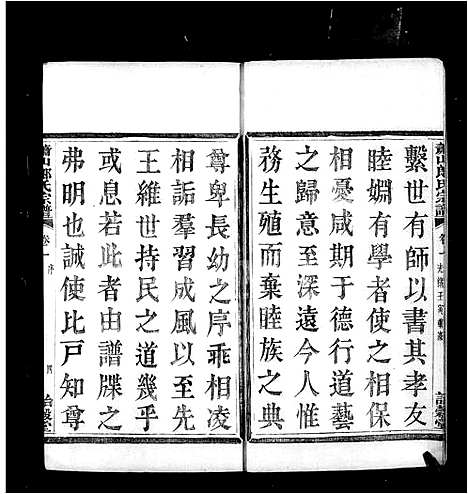 繫世有師以書其孝友
睦婣有學者使之相保
相憂咸期于德行道藝
之歸意至深遠今人惟
務生殖而棄睦族之典
蕭山郎氏宗譜
卷一 序 四
尊卑長幼之序乖相凌
相詬羣習成風以至先
王維世持民之道幾乎
或息若此者由譜牒之
弗明也誠使比戶知尊
蕭山郎氏宗譜
卷一